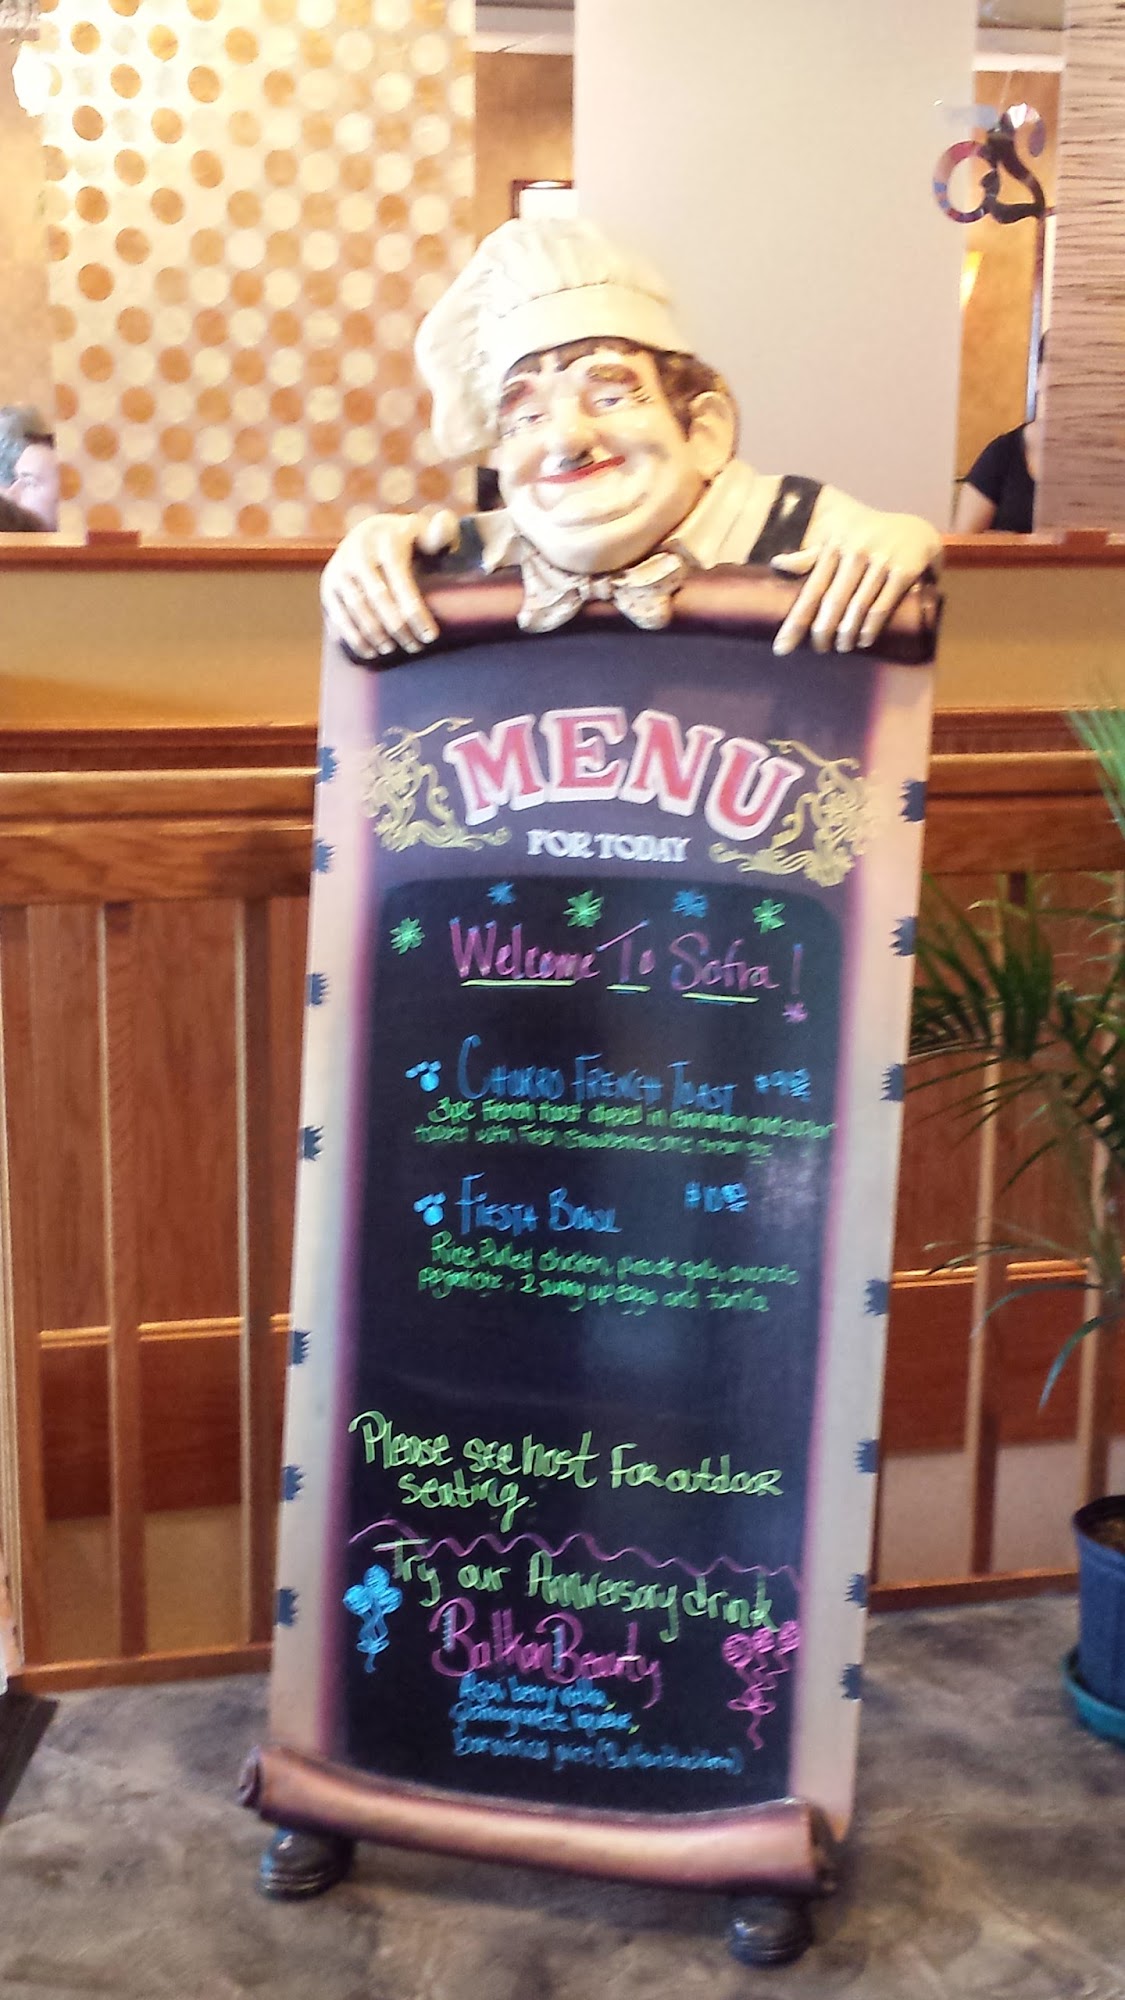 MENU
FOR TODAY
Welcome To Sofra!
CHURRO FRENCH TOAST
3pc French toast dipped in cinnamon and sugar
topped with Fresh Strawberries and
FIESTA BOWL
Rice, Pulled chicken, pico de gallo, avocado
2 sunny up eggs and tortilla
Please see host For outdoor
seating.
Try our Anniversary drink
Balkan Beauty
Acai berry vodka,
Pomegranate liqueur,